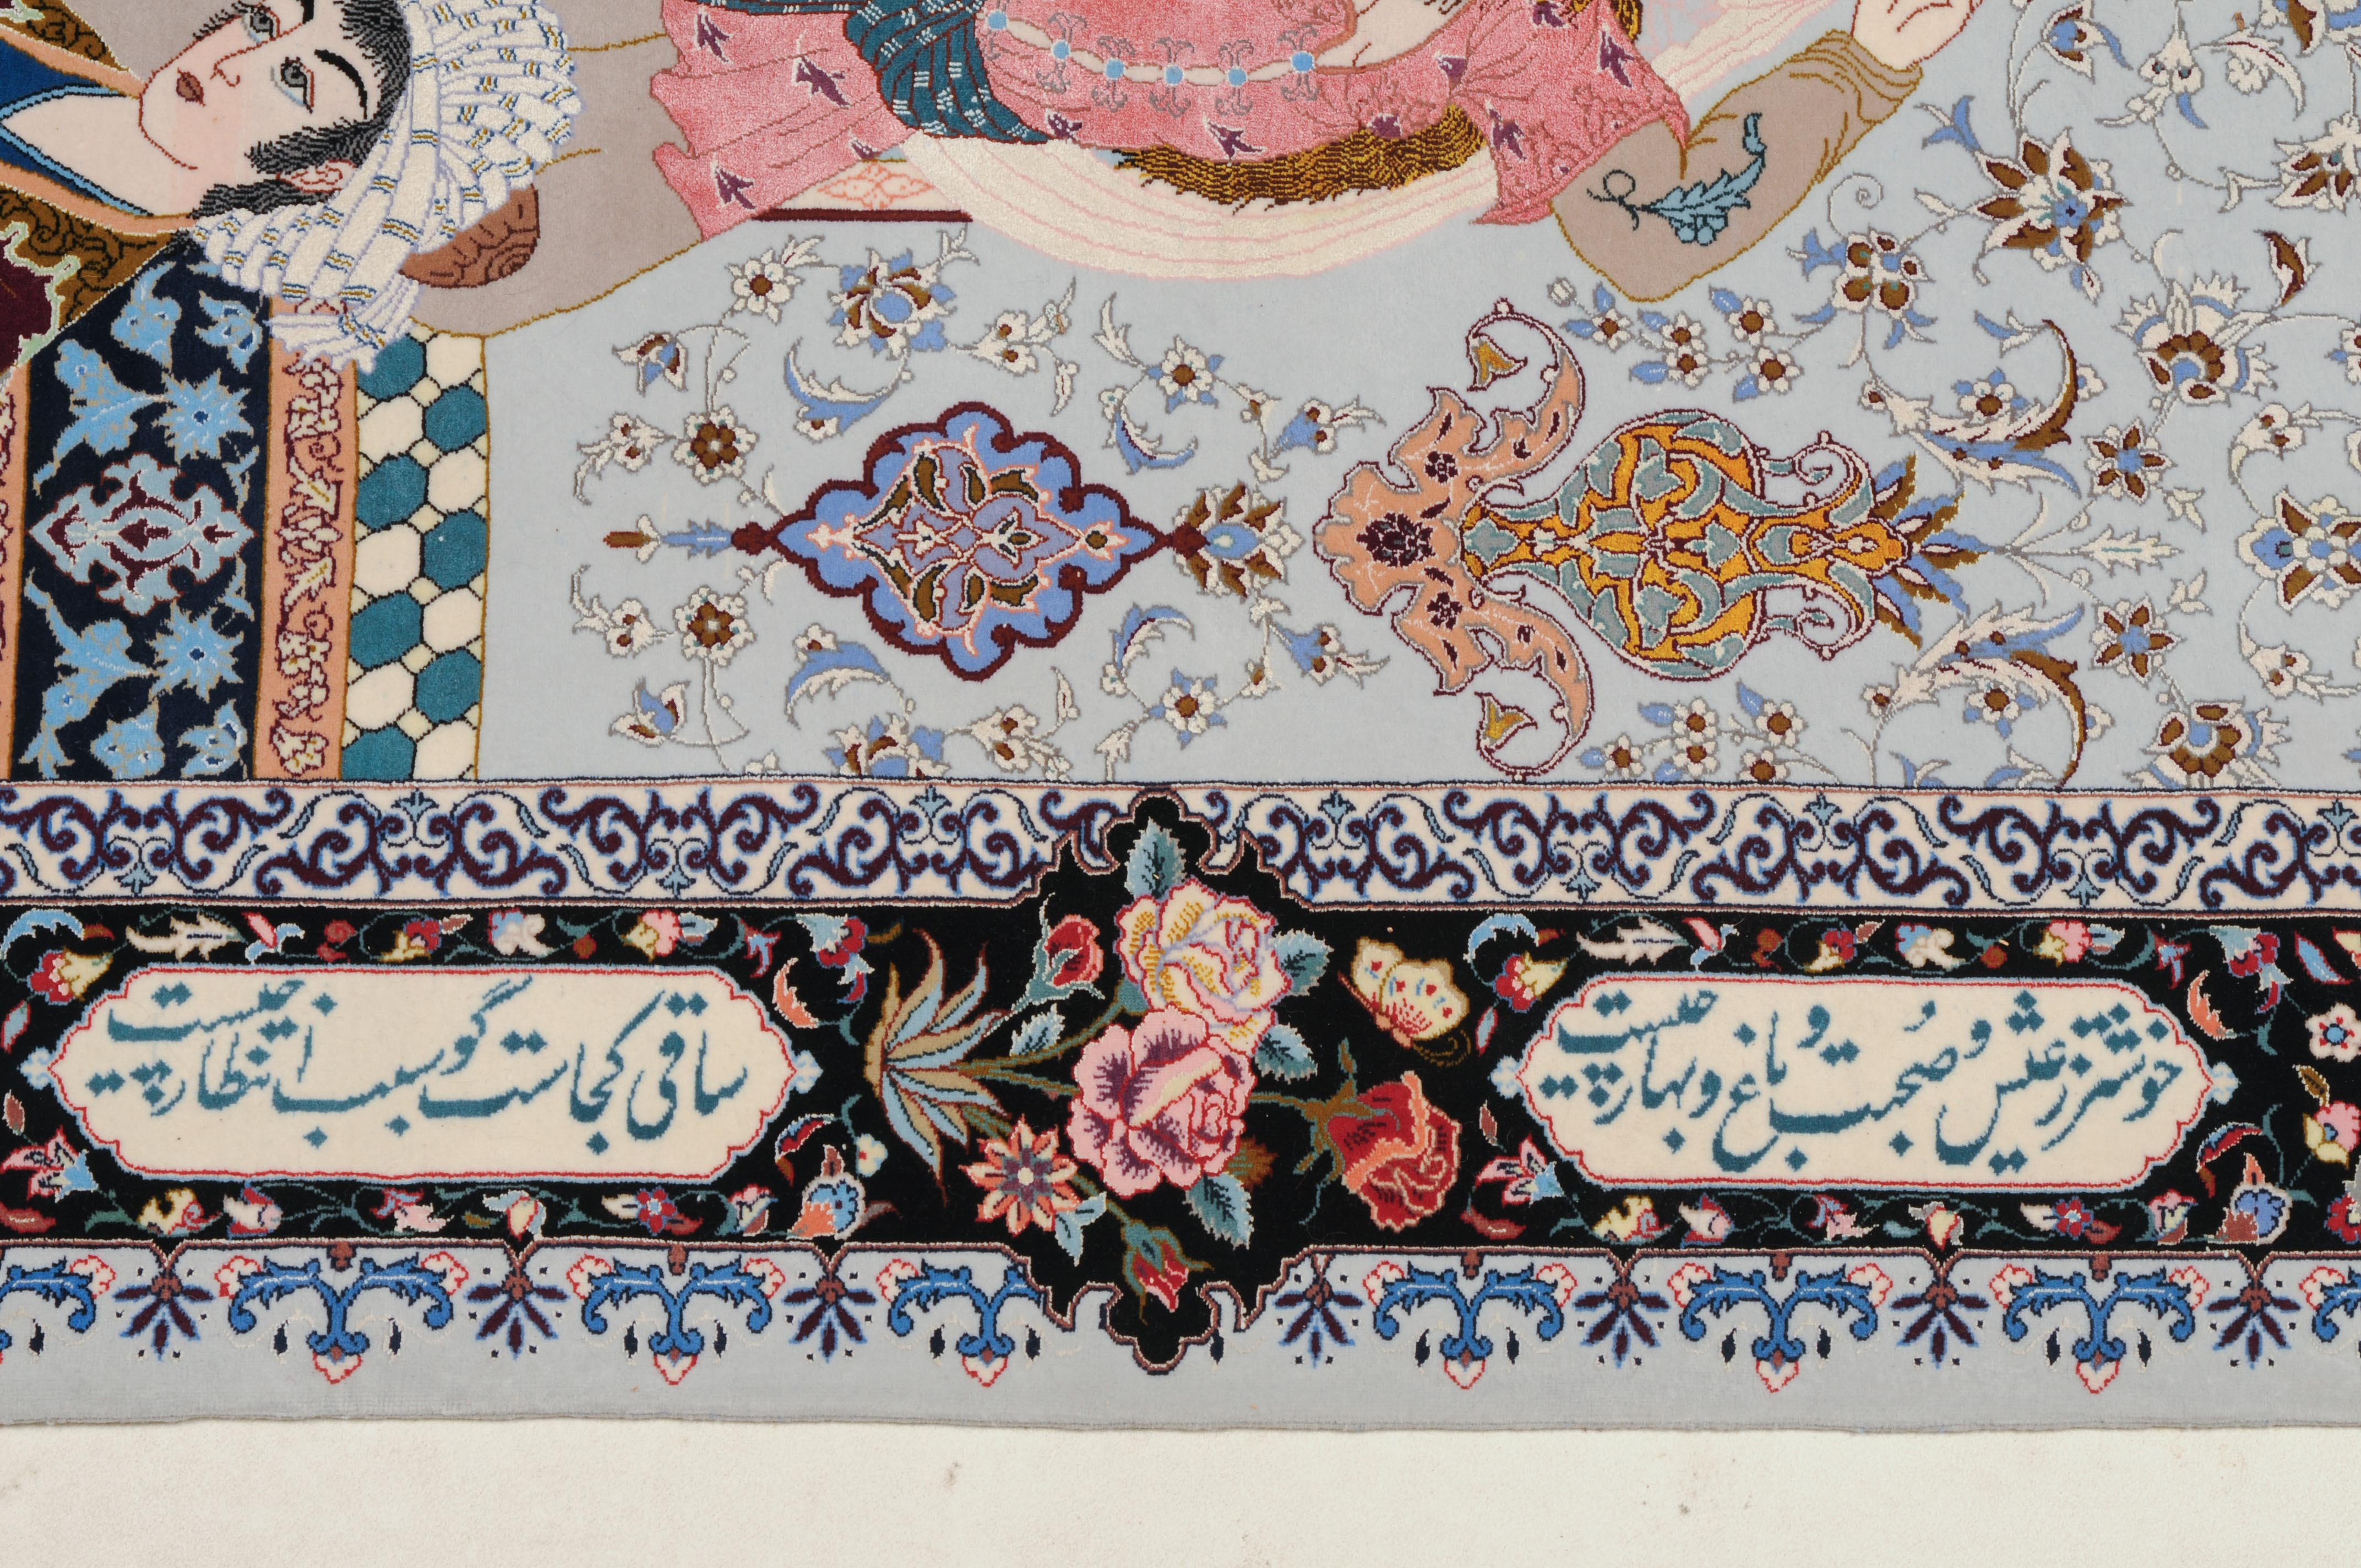 خوشتر ز عیش و صحبت و باغ و بهار چیست
ساقی کجاست گو سبب انتظار چیست